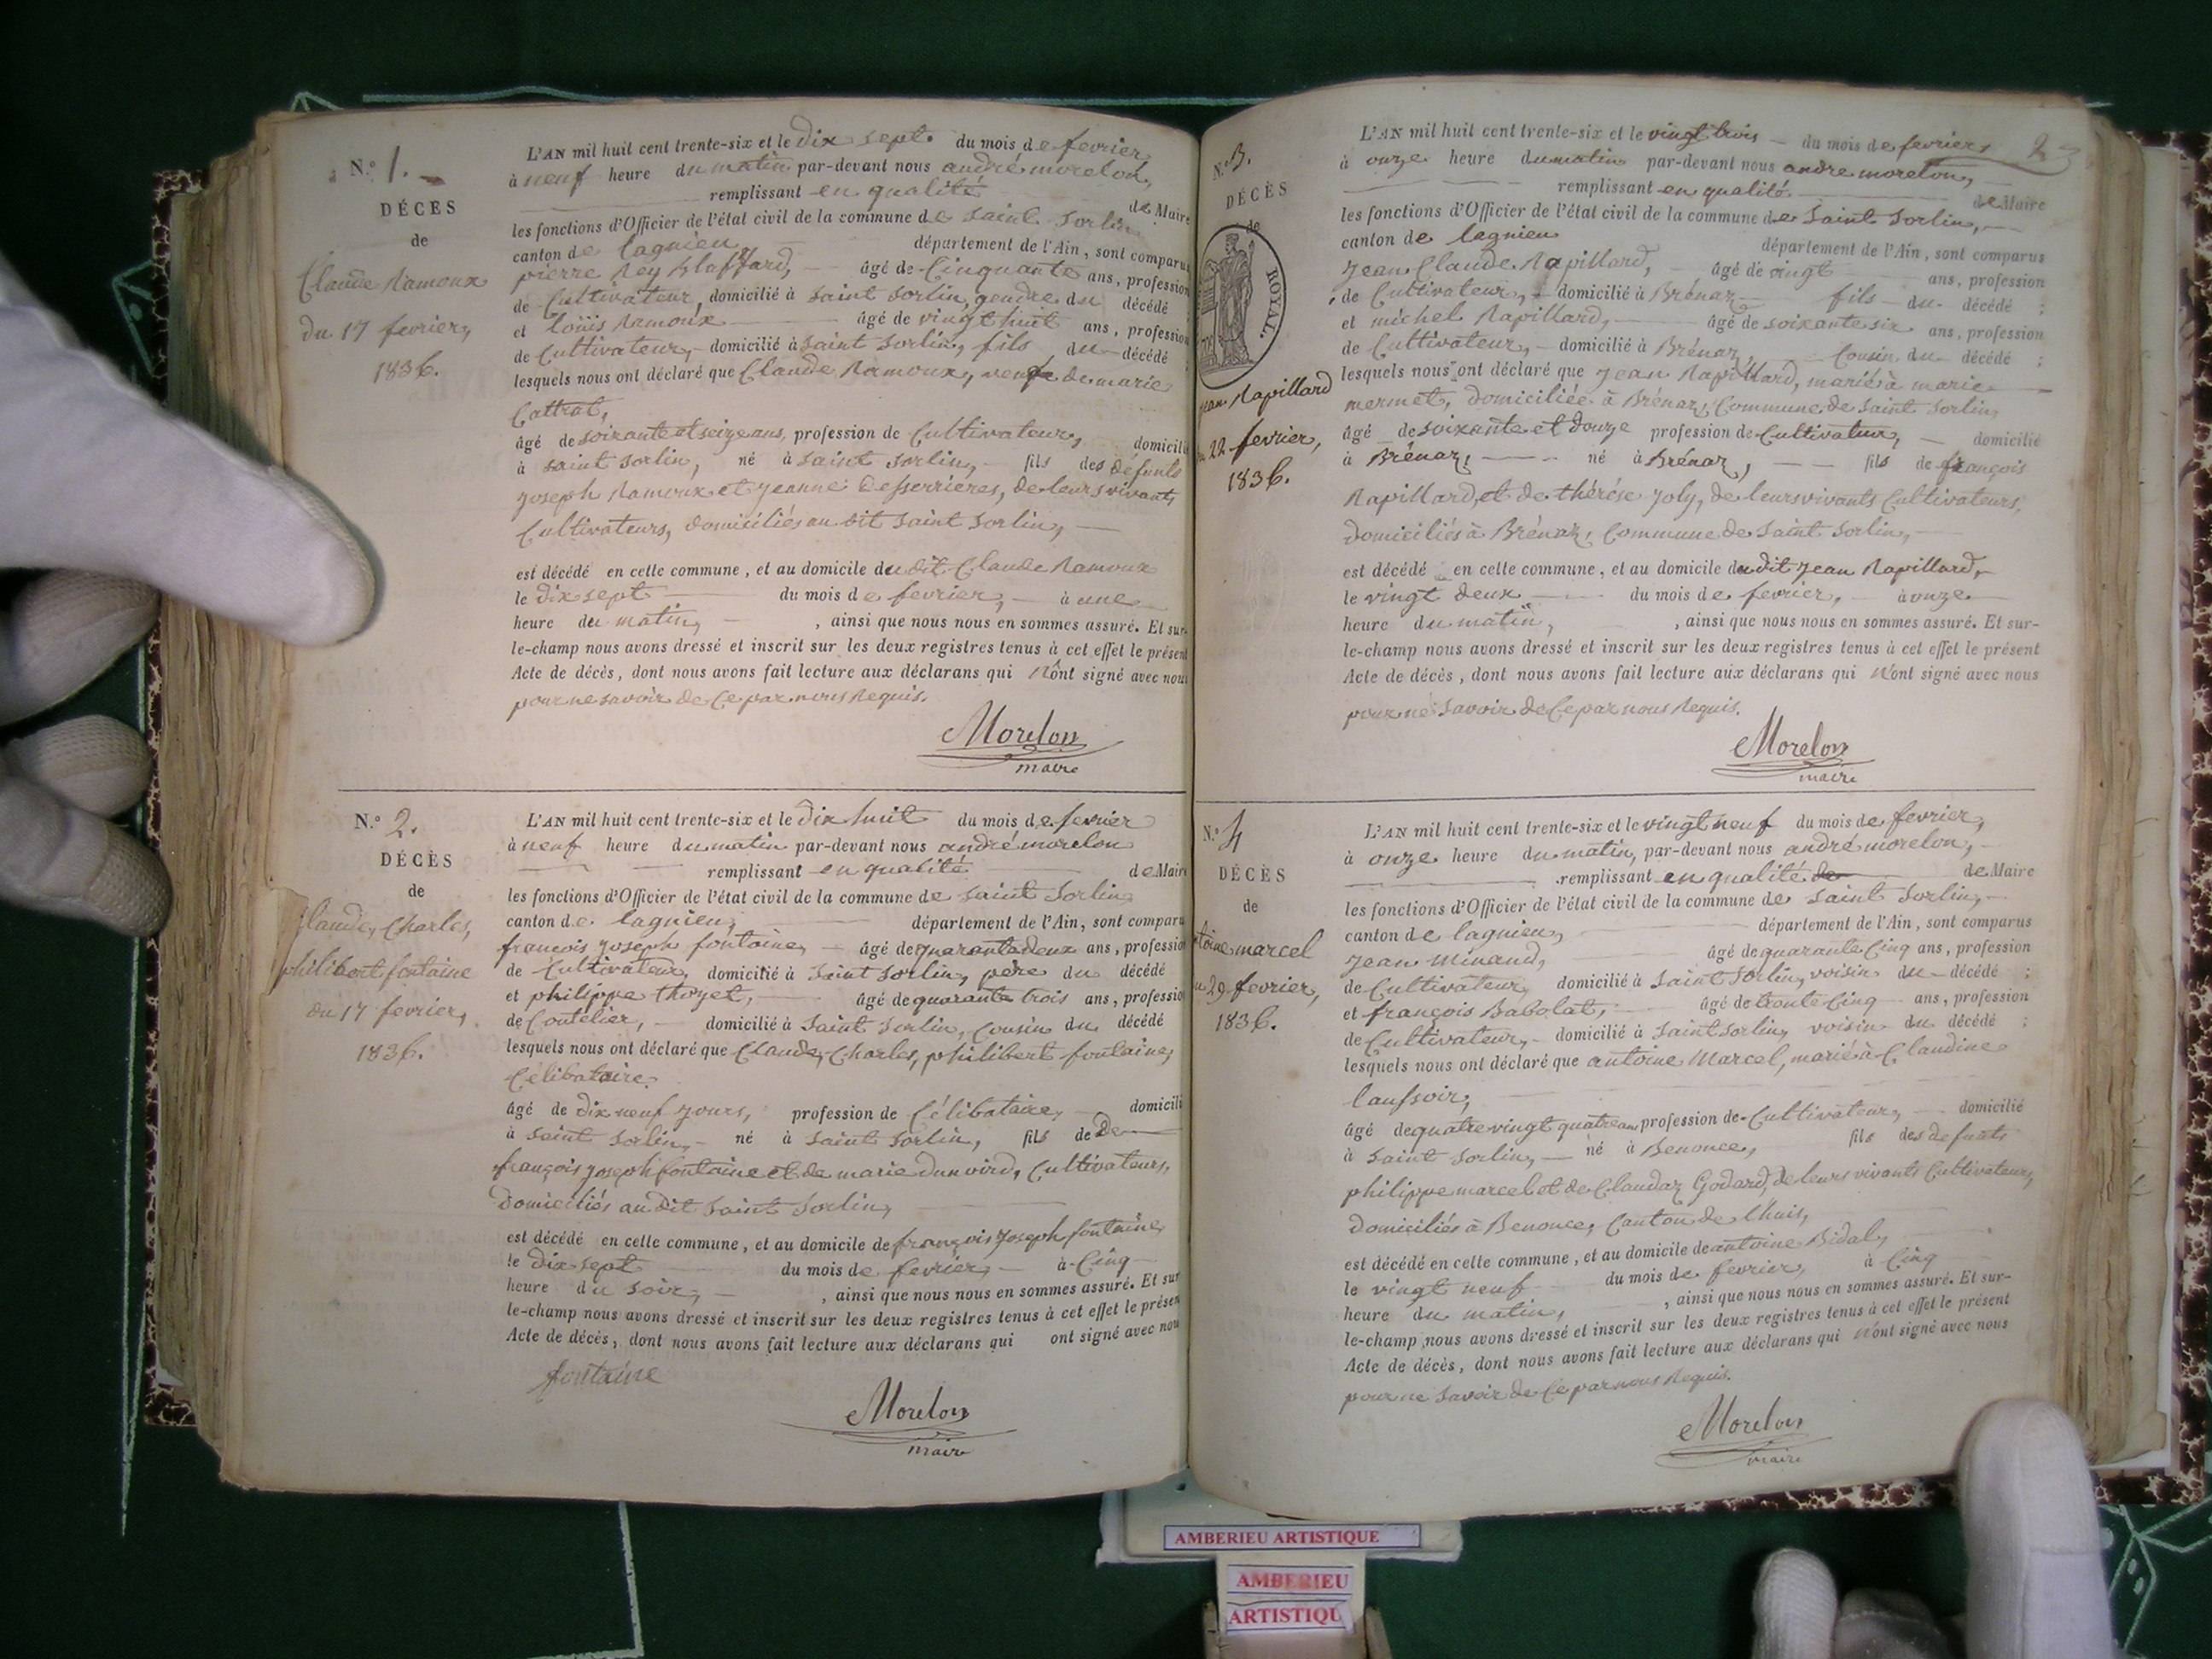 N.º 1.
DÉCES
de
Claude Ramoux
du 17 fevrier,
1836.
L'AN mil huit cent trente-six et le dix sept. du mois de fevrier,
à neuf heure du matin par-devant nous andré morelon,
remplissant en qualité de Maire
les fonctions d'Officier de l'état civil de la commune de Saint Sorlin
canton de lagnieu département de l'Ain, sont comparus
pierre Rey âgé de Cinquante ans, profession
de Cultivateur, domicilié à Saint Sorlin, gendre du décédé
et loüis Ramoux âgé de vingt huit ans, profession
de Cultivateur, domicilié à Saint Sorlin, fils du décédé
lesquels nous ont déclaré que Claude Ramoux, de marie
âgé de soixante et seize ans, profession de Cultivateur, domicilié
à Saint Sorlin, né à Saint Sorlin, fils des défunts
Joseph Ramoux et Jeanne Desserrieres, de leurs vivants
Cultivateurs, domiciliés au dit Saint Sorlin,
est décédé en cette commune, et au domicile du dit Claude Ramoux
le dix sept du mois de fevrier, à une
heure du matin, , ainsi que nous nous en sommes assuré. Et sur-
le-champ nous avons dressé et inscrit sur les deux registres tenus à cet effet le présent
Acte de décès, dont nous avons fait lecture aux déclarans qui N'ont signé avec nous
pour ne savoir de Ce par nous Requis.
Morelon
maire
N.º 2.
DÉCÈS
de
Claude, Charles,
philibert fontaine
du 17 fevrier,
1836.
L'AN mil huit cent trente-six et le dix huit du mois de fevrier
à neuf heure du matin par-devant nous andré morelon
remplissant en qualité de Maire
les fonctions d'Officier de l'état civil de la commune de Saint Sorlin
canton de lagnieu, département de l'Ain, sont comparu
françois Joseph fontaine, âgé de quarante deux ans, profession
de Cultivateur, domicilié à Saint Sorlin, père du décédé
et philippe thozet, âgé de quarante trois ans, profession
de Coutelier, domicilié à Saint Sorlin, Cousin du décédé
lesquels nous ont déclaré que Claude, Charles, philibert fontaine,
Célibataire.
âgé de dix neuf jours, profession de Célibataire, domicilié
à Saint Sorlin, né à Saint Sorlin, fils de De
françois Joseph fontaine et de marie Cultivateurs,
domiciliés au dit Saint Sorlin,
est décédé en cette commune, et au domicile de françois Joseph fontaine
le dix sept du mois de fevrier, à Cinq
heure du soir, , ainsi que nous nous en sommes assuré. Et sur
le-champ nous avons dressé et inscrit sur les deux registres tenus à cet effet le présent
Acte de décès, dont nous avons fait lecture aux déclarans qui ont signé avec nou
fontaine
Morelon
maire
2
N.º 3.
DÉCÈS
de
ROYAL.
jean Rapillard
du 22 fevrier,
1836.
L'AN mil huit cent trente-six et le vingt trois du mois de fevrier,
à onze heure du matin par-devant nous andre morelon,
remplissant en qualité de Maire
les fonctions d'Officier de l'état civil de la commune de Saint Sorlin,
canton de lagnieu département de l'Ain, sont comparus
Jean Claude Rapillard, âgé de vingt ans, profession
de Cultivateur, domicilié à Brénaz fils du décédé ;
et michel Rapillard, âgé de soixante six ans, profession
de Cultivateur, domicilié à Brénaz, Cousin du décédé ;
lesquels nous ont déclaré que Jean Rapillard, marié à marie
mermet, domiciliée à Brénaz, Commune de Saint Sorlin,
âgé de soixante et douze profession de Cultivateur, domicilié
à Brénaz, né à Brénaz, fils de françois
Rapillard, et de thérése Joly, de leurs vivants Cultivateurs,
domiciliés à Brénaz, Commune de Saint Sorlin,
est décédé en cette commune, et au domicile du dit Jean Rapillard,
le vingt deux du mois de fevrier, à onze
heure du matin, , ainsi que nous nous en sommes assuré. Et sur-
le-champ nous avons dressé et inscrit sur les deux registres tenus à cet effet le présent
Acte de décès, dont nous avons fait lecture aux déclarans qui N'ont signé avec nous
pour ne Savoir de Ce par nous Requis.
Morelon
maire
N.º 4
DÉCÈS
de
toine marcel
29 fevrier,
1836.
L'AN mil huit cent trente-six et le vingt neuf du mois de fevrier,
à onze heure du matin, par-devant nous andré morelon,
remplissant en qualité de de Maire
les fonctions d'Officier de l'état civil de la commune de Saint Sorlin,
canton de lagnieu, département de l'Ain, sont comparus
Jean Minaud, âgé de quarante Cinq ans, profession
de Cultivateur, domicilié à Saint Sorlin, voisin du décédé ;
et françois Babolat, âgé de trente Cinq ans, profession
de Cultivateur, domicilié à Saint Sorlin, voisin du décédé ;
lesquels nous ont déclaré que antoine Marcel, marié à Claudine
laussoir,
âgé de quatre vingt quatre ans profession de Cultivateur, domicilié
à Saint Sorlin, né à Benonce, fils des defunts
philippe marcel et de Claudaz Godard, de leurs vivants Cultivateurs,
domiciliés à Benonce, Canton de lhuis,
est décédé en cette commune, et au domicile de antoine Bidal,
le vingt neuf du mois de fevrier, à Cinq
heure du matin, , ainsi que nous nous en sommes assuré. Et sur-
le-champ nous avons dressé et inscrit sur les deux registres tenus à cet effet le présent
Acte de décès, dont nous avons fait lecture aux déclarans qui N'ont signé avec nous
pour ne Savoir de Ce par nous Requis.
Morelon
maire
AMBERIEU ARTISTIQUE
AMBERIEU
ARTISTIQU